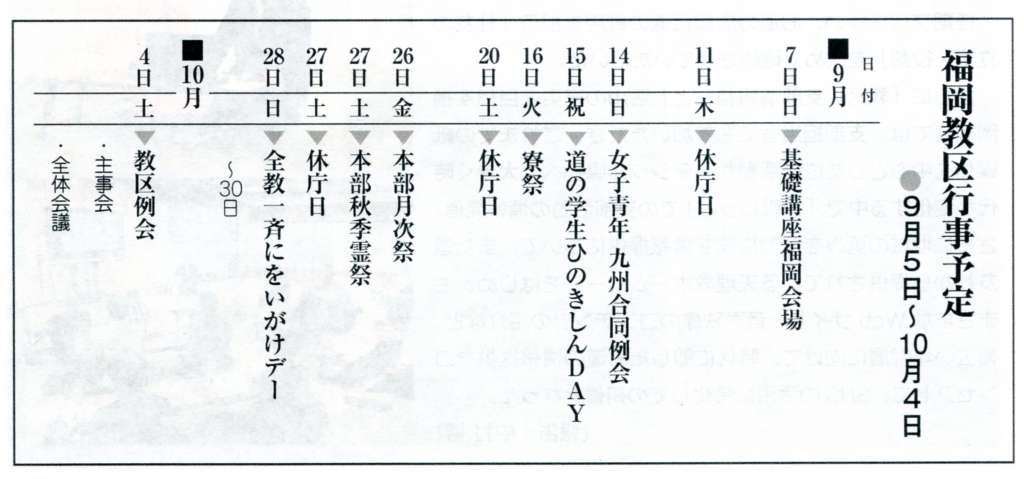 福岡教区行事予定
●9月5日 10月4日
日付
■9月
7日 日 ▼基礎講座福岡会場
11日 木 ▼休庁日
14日 日 ▼女子青年九州合同例会
15日 祝 ▼道の学生ひのきしんDAY
16日 火 ▼寮祭
20日 ▼休庁日
26日 金 ▼本部月次祭
27日 土 ▼本部秋季霊祭
27日 土 ▼休庁日
28日 日 ▼全教一斉にをいがけデー
～30日
■10月
4日 土 ▼教区例会
・主事会
・全体会議